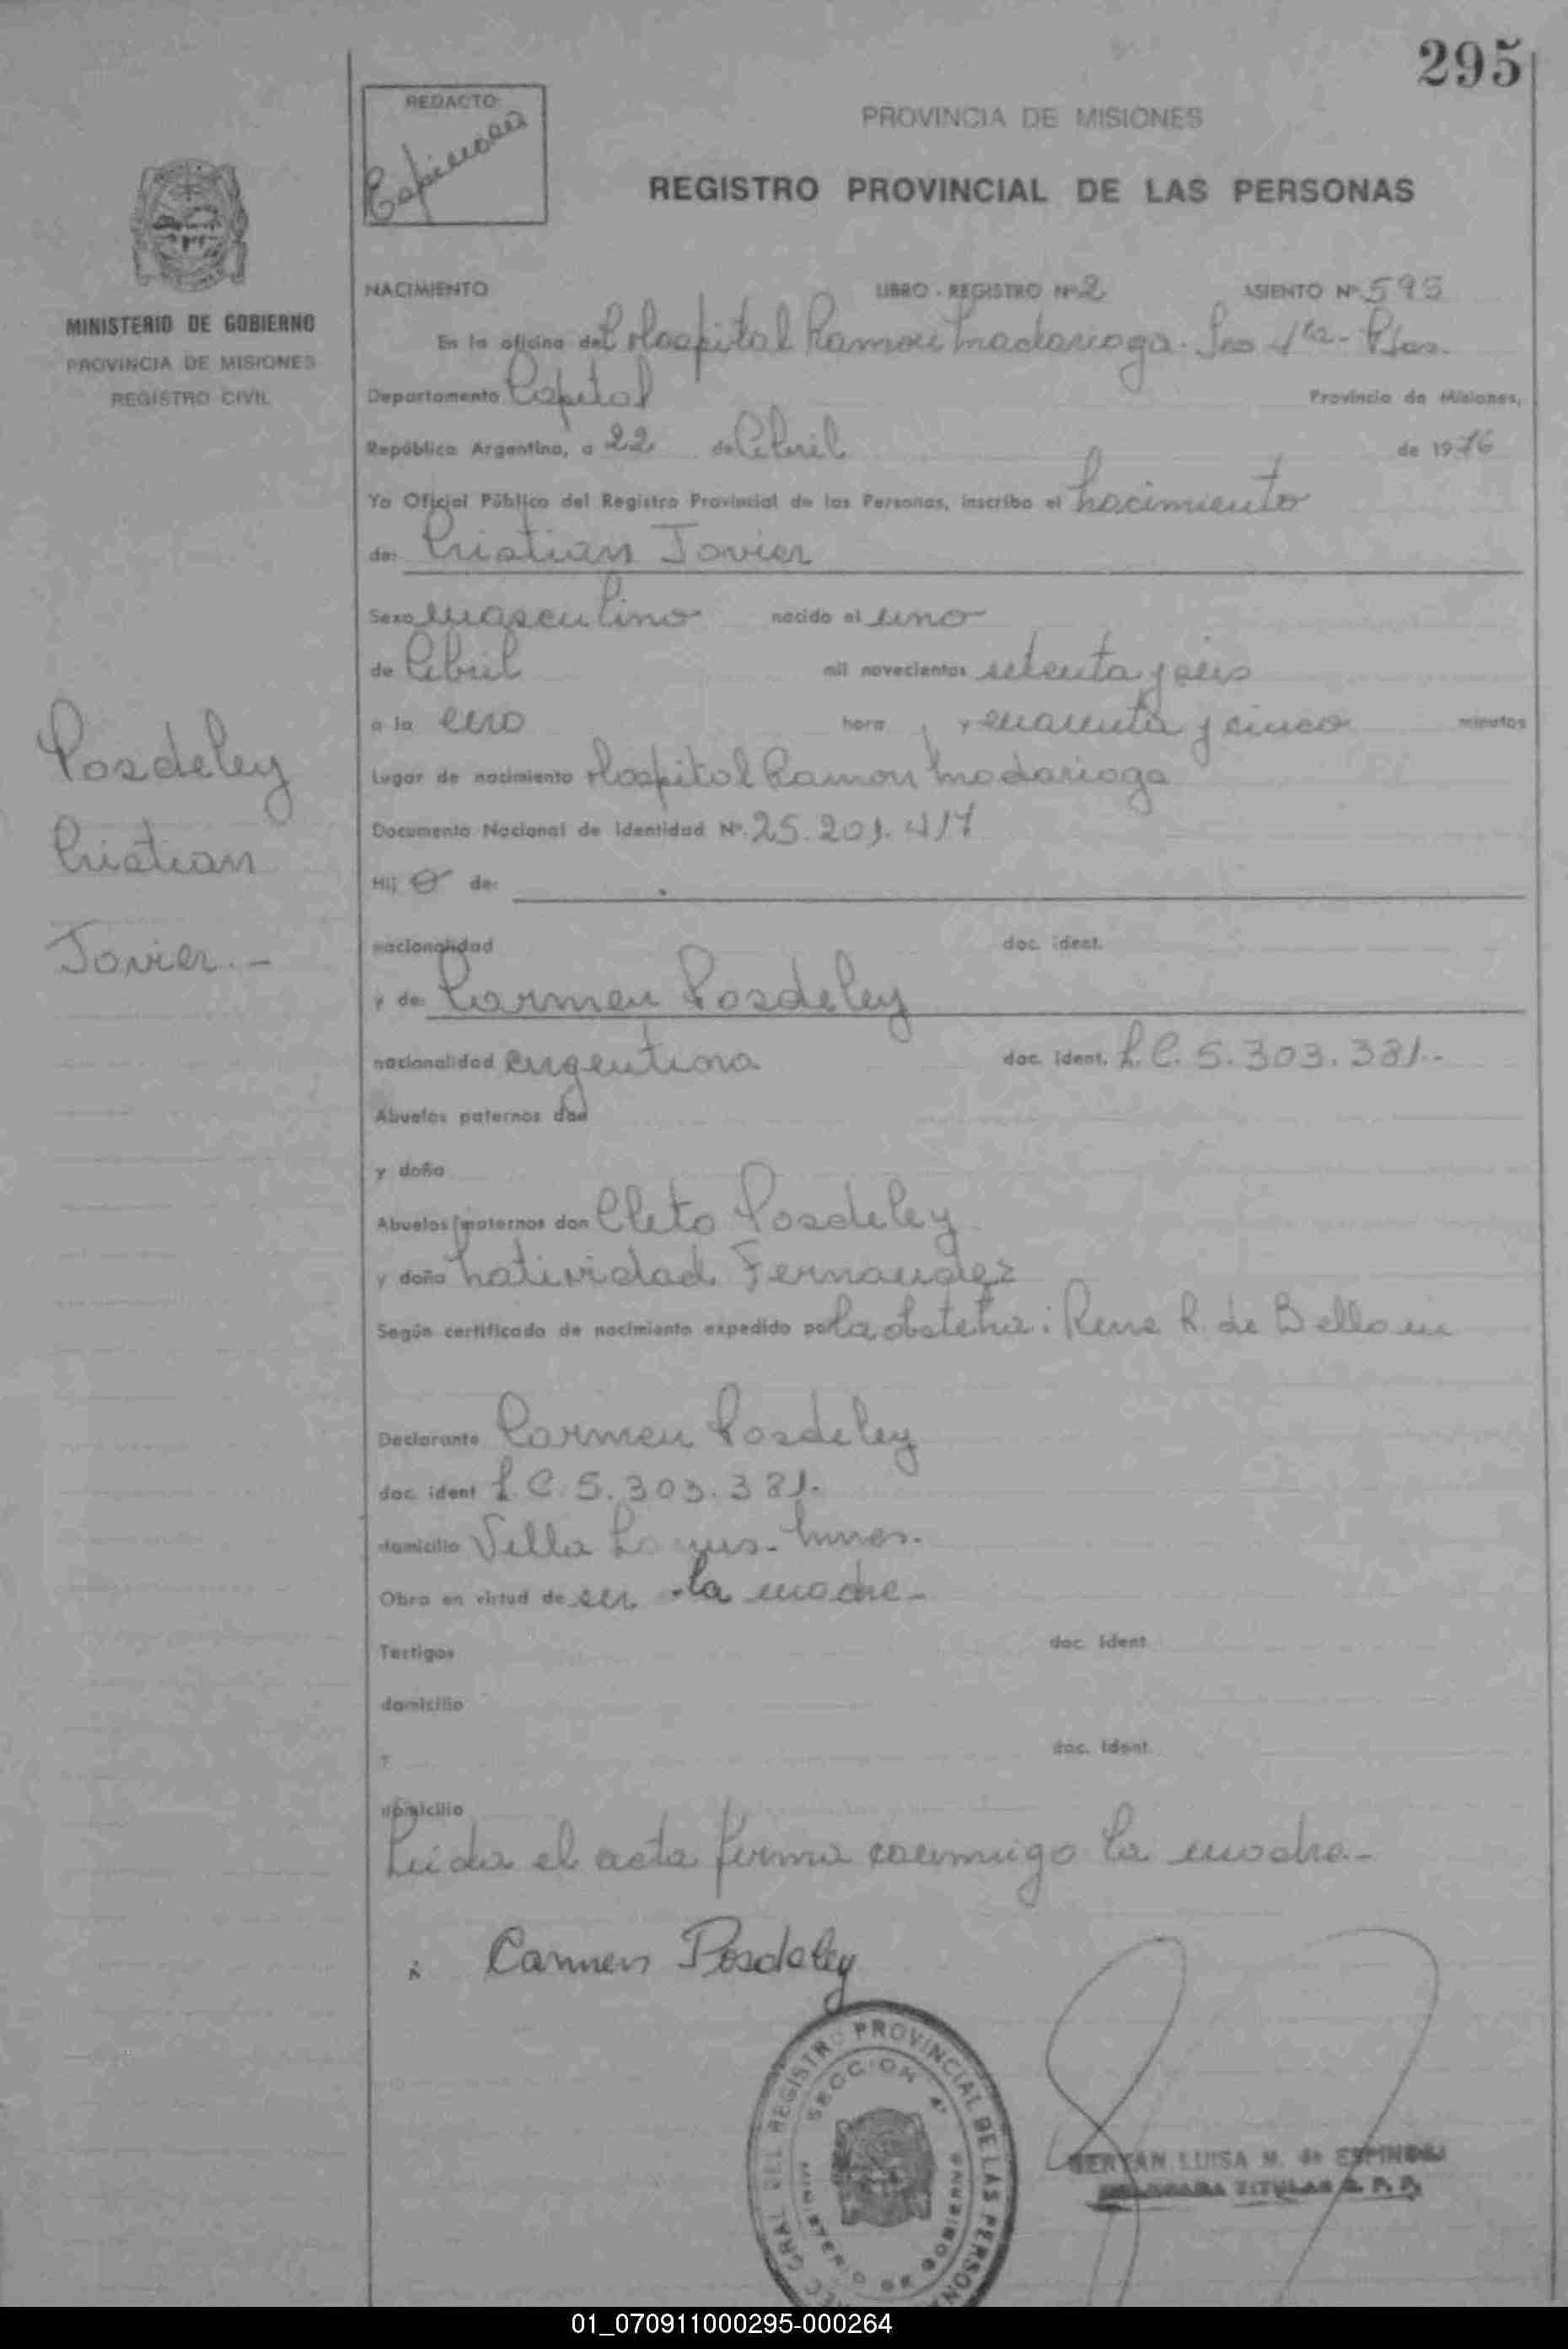 295
REDACTO
Espinosa
PROVINCIA DE MISIONES
REGISTRO PROVINCIAL DE LAS PERSONAS
MINISTERIO DE GOBIERNO
PROVINCIA DE MISIONES
REGISTRO CIVIL
NACIMIENTO LIBRO - REGISTRO Nº 2 ASIENTO Nº 595
En la oficina del Hospital Ramon Madariaga. Sec 4ta - Pdas.
Departamento Capital Provincia de Misiones,
República Argentina, a 22 de Abril de 1976
Yo Oficial Público del Registro Provincial de las Personas, inscribo el Nacimiento
de: Cristian Javier
Sexo Masculino nacido el uno
de Abril mil novecientos setenta y seis
a la cero hora y cuarenta y cinco minutos
Lugar de nacimiento Hospital Ramon Madariaga
Documento Nacional de Identidad Nº. 25.201.417
Hij o de:
nacionalidad doc. ident.
y de: Carmen Posdeley
nacionalidad argentina doc. ident. L.C. 5.303.381.-
Abuelos paternos don
y doña
Abuelos maternos don Cleto Posdeley
y doña Natividad Fernandez
Según certificado de nacimiento expedido por la obstetra: Rene R. de
Posdeley
Cristian
Javier.-
Declarante Carmen Posdeley
doc. ident L.C. 5.303.381.
domicilio Villa
Obra en virtud de ser la madre-
Testigos doc. ident.
domicilio
Y doc. ident.
domicilio
Leida el acta firma conmigo la madre.-
Carmen Posdeley
GRAL DEL REGISTRO PROVINCIAL DE LAS PERSONA
SECCION 4ª
MINISTERIO DE GOBIERNO
LUISA M. de ESPINOSA
DELEGADA TITULAR R. P. P.
01_070911000295-000264